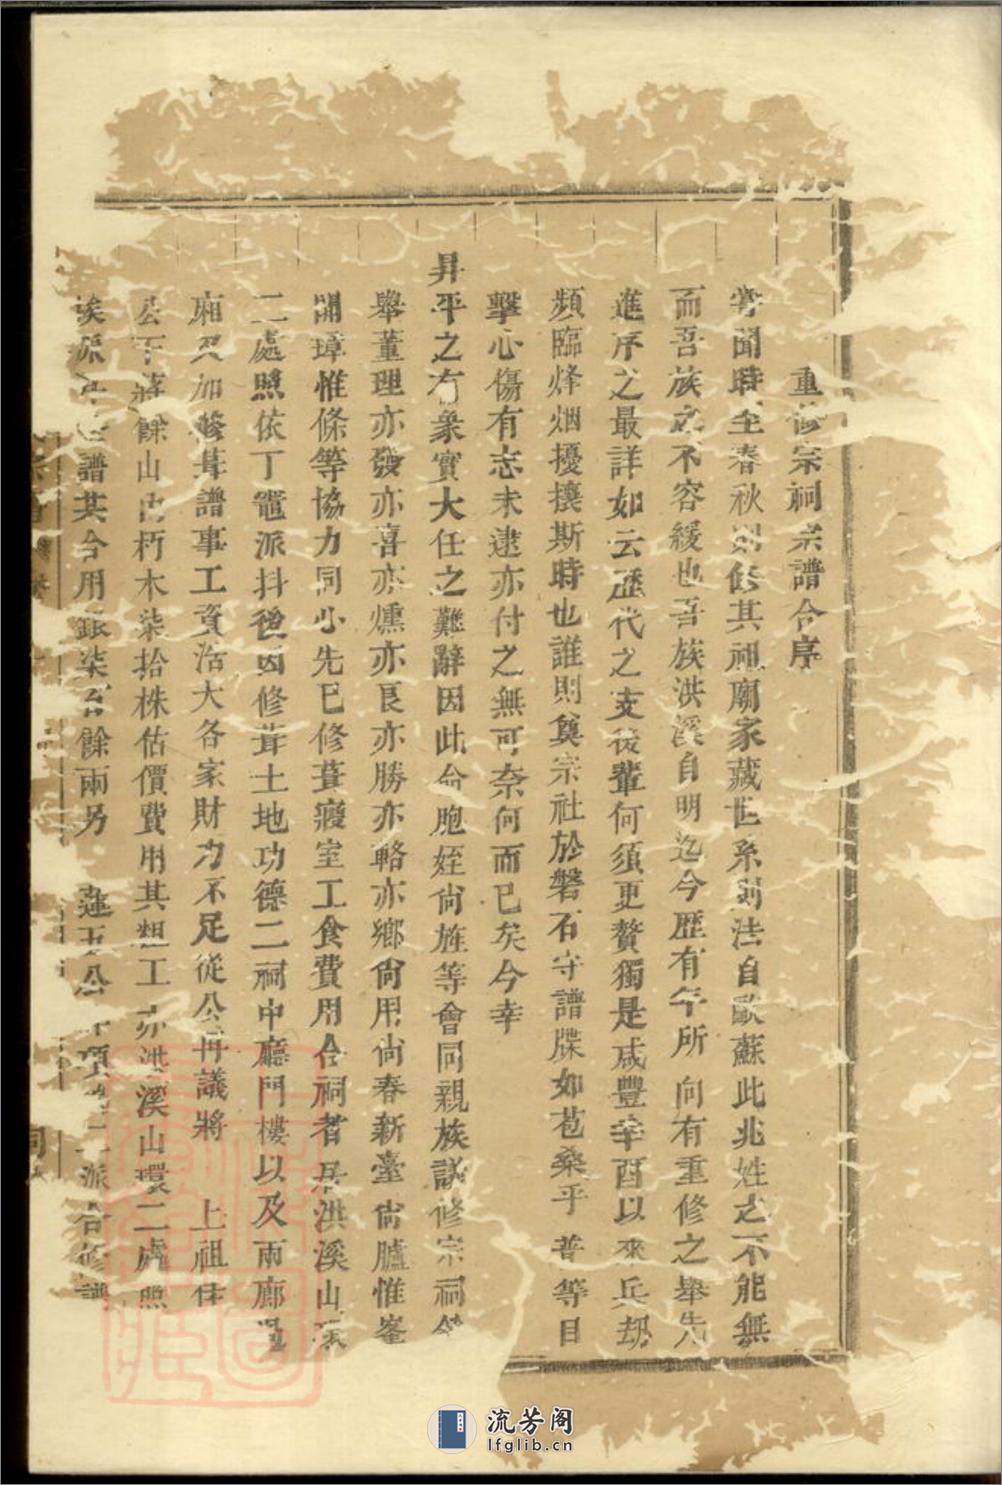 重修宗祠宗譜合序
嘗聞時至春秋則修其祖廟家藏世系則法自歐蘇此兆姓之不能無
而吾族之不容緩也吾族洪溪自明迄今歷有年所向有重修之舉先
進序之最詳如云歷代之支後輩何須更贅獨是咸豐辛酉以來兵劫
頻臨烽烟擾攘斯時也誰則奠宗社於磐石守譜牒如苞桑乎普等目
擊心傷有志未逮亦付之無可奈何而已矣今幸
昇平之有象實大任之難辭因此命胞姪尙旌等會同親族議修宗祠
舉董理亦發亦喜亦燻亦良亦勝亦輅亦鄉尙用尙春新臺尙臚惟峯
開璋惟條等協力同心先已修葺寢室工食費用合祠者呉洪溪山環
二處照依丁竈派抖後因修葺土地功德二祠中廳門樓以及兩廊
廂又加修葺譜事工資浩大各家財力不足從公再議將 上祖住
公下蔣餘山内朽木柒拾株估價費用其粗工亦洪溪山環二處照
埃派 譜其合用銀柒百餘兩另 蓮五公 項 二派合修譜
流芳阁
lfglib.cn